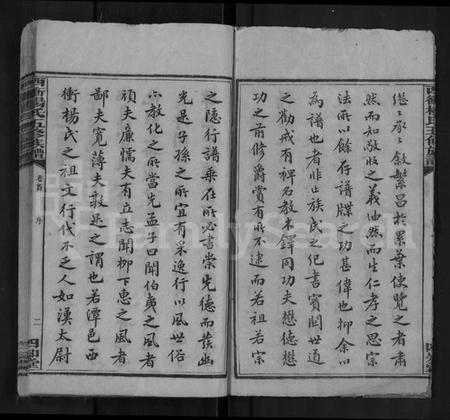 繼之承之敘繁昌於累葉使覽之者肅
然而知敬收之義油然而生仁孝之思宗
法所以餘存譜牒之功甚偉也抑余以
為譜也者非止族氏之紀書實關世道
之勸戒有裨名教木鐸同功夫懋德懋
功之前修爵賞有所不逮而若祖若宗
之隱行譜乘在所必書崇先德而發幽
光是子孫之所宜有采逸行以風世俗
亦教化之所當先孟子曰聞伯夷之風者
頑夫廉懦夫有立志聞柳下惠之風者
鄙夫寬薄夫敦是之謂也若潭邑西
衝楊氏之祖文行代不乏人如漢太尉
西衝楊氏五修族譜
卷首
序
二
四知堂
FamilySearch